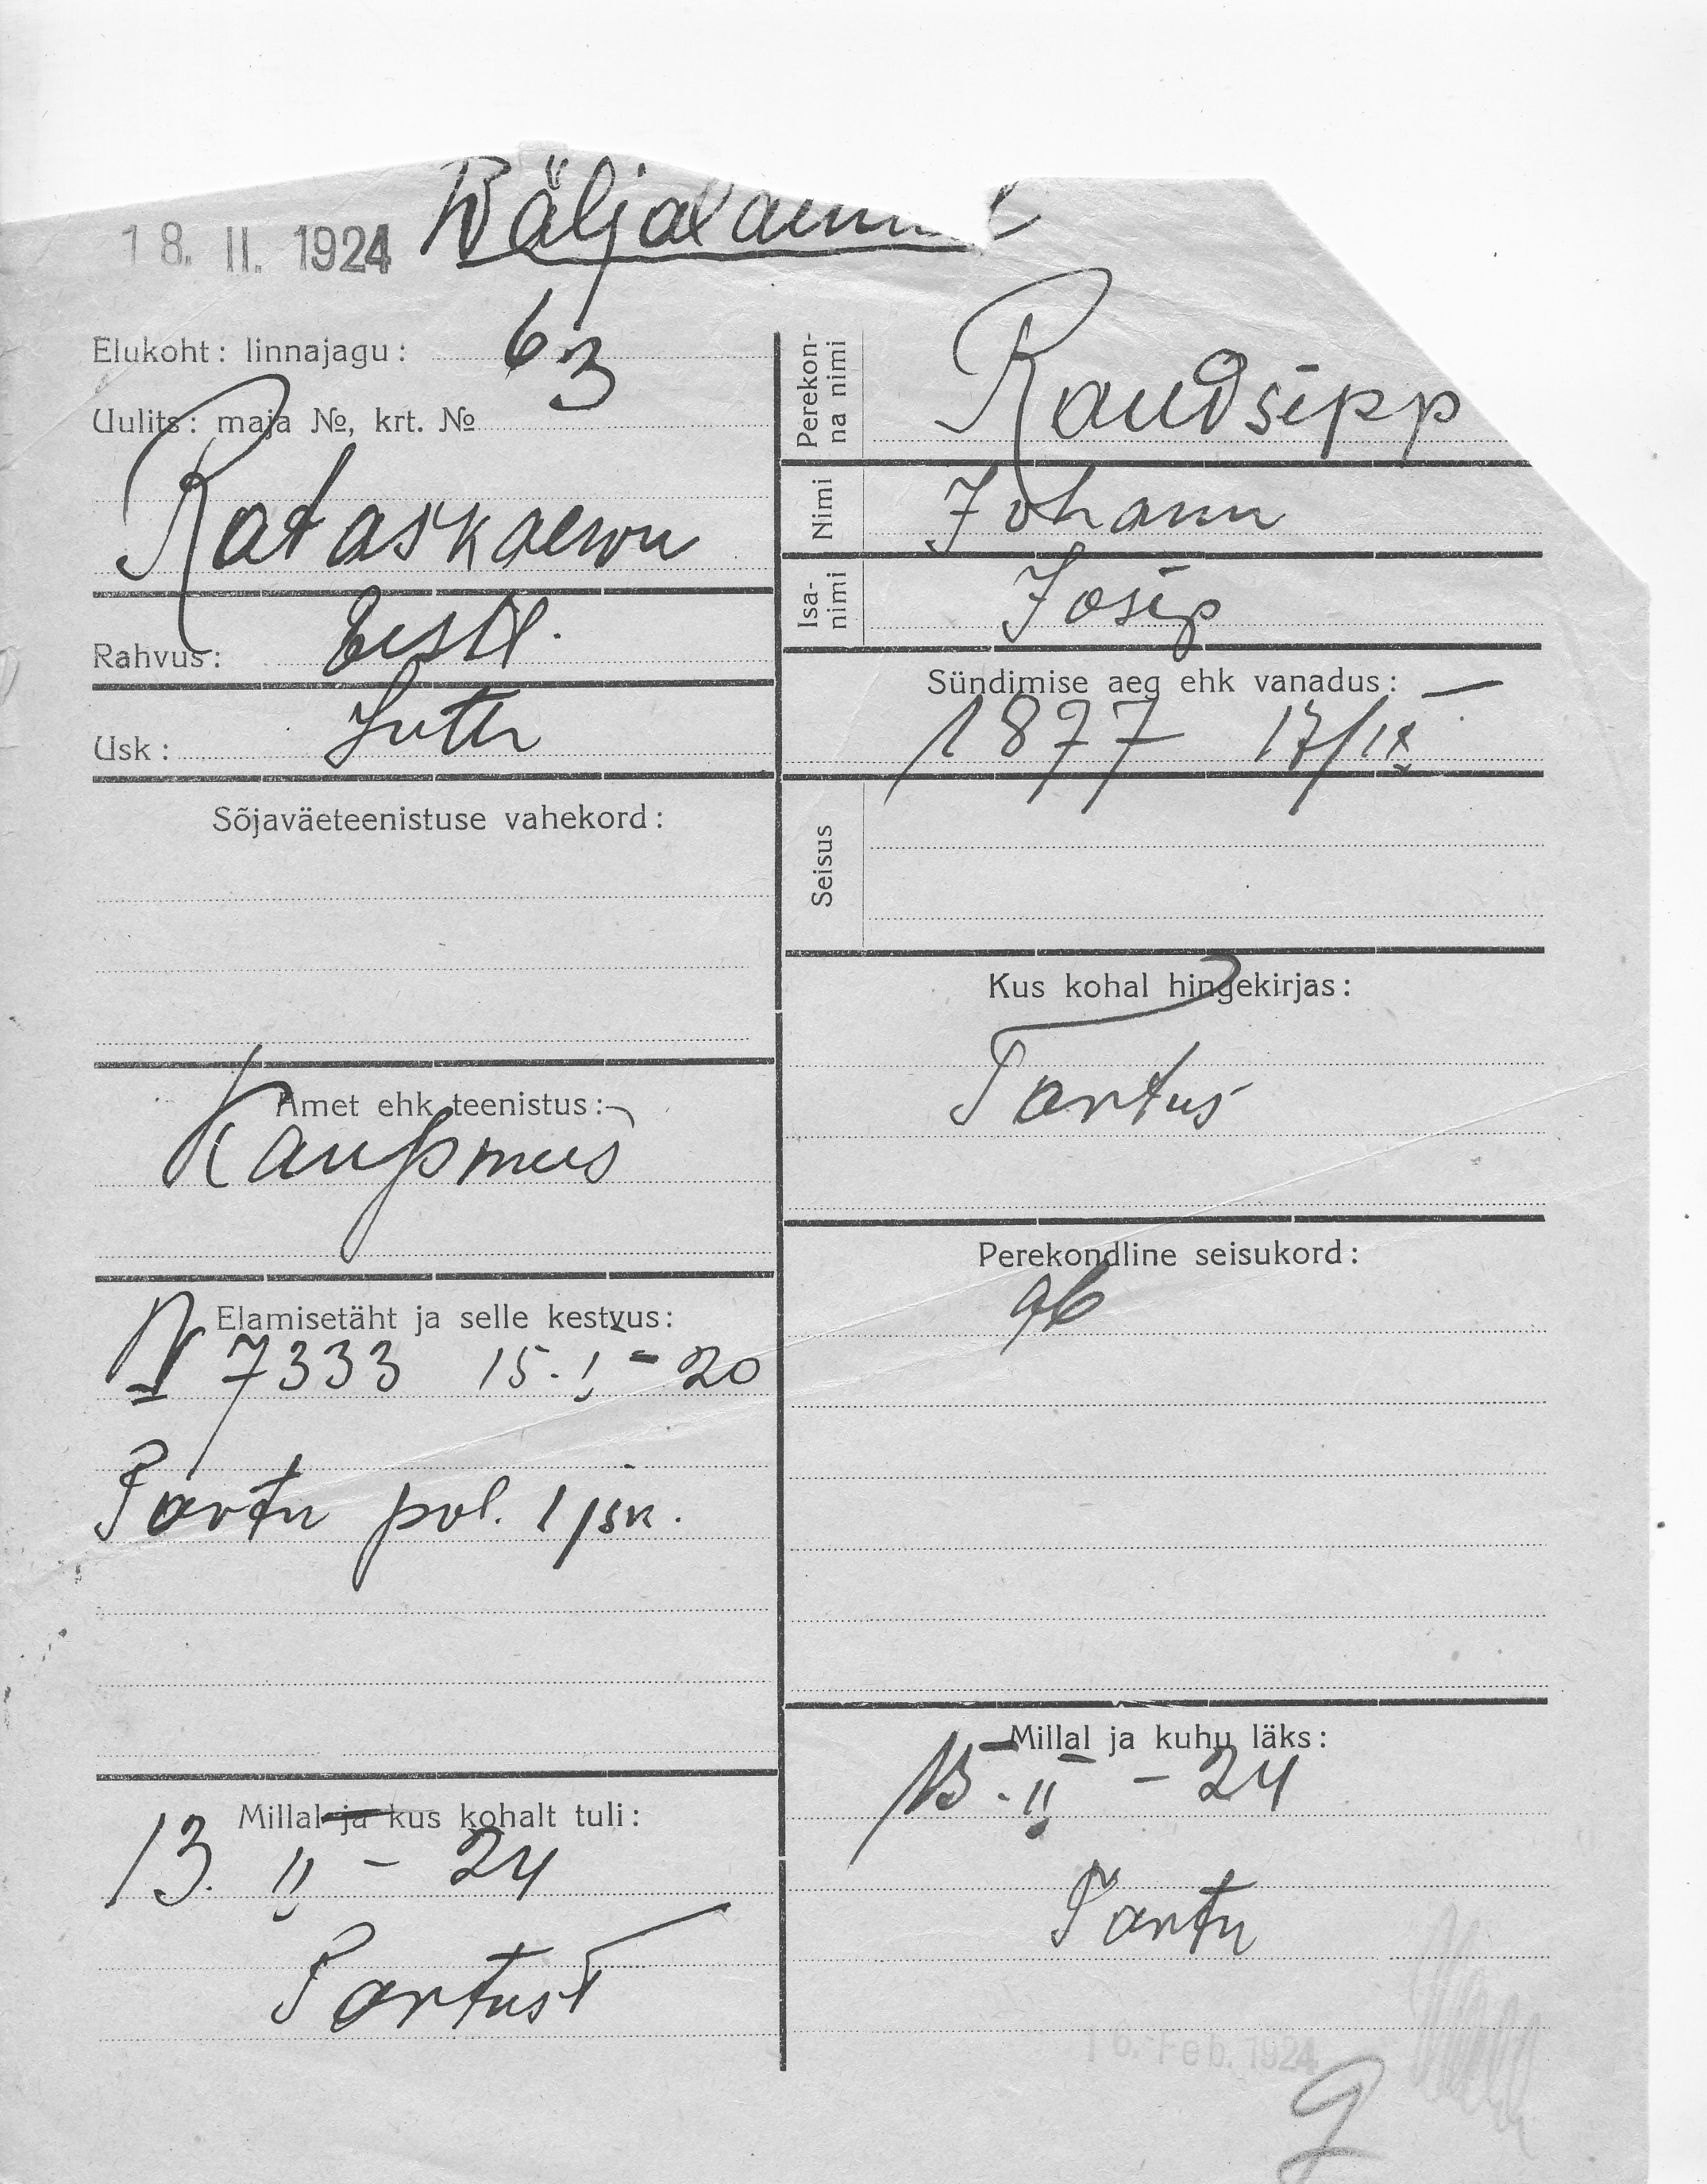 18. II. 1924
Elukoht: linnajagu: 6
3
Uulits: maja №, krt. №
Rataskaewu
Rahvus: Eestl.
Usk: Luth
Sõjaväeteenistuse vahekord:
Amet ehk teenistus:
Kaupmees
Elamisetäht ja selle kestvus:
N 7333 15.I-20
Tartu pol. 1 jsk.
Millal ja kus kohalt tuli:
13. II - 24
Tartust
Perekon-
na nimi
Raudsepp
Nimi
Johann
Isa-
nimi
Josep
Sündimise aeg ehk vanadus:
1877 17/IX
Seisus
Kus kohal hingekirjas:
Tartus
Perekondline seisukord:
ab
Millal ja kuhu läks:
15. II - 24
Tartu
16. Feb. 1924